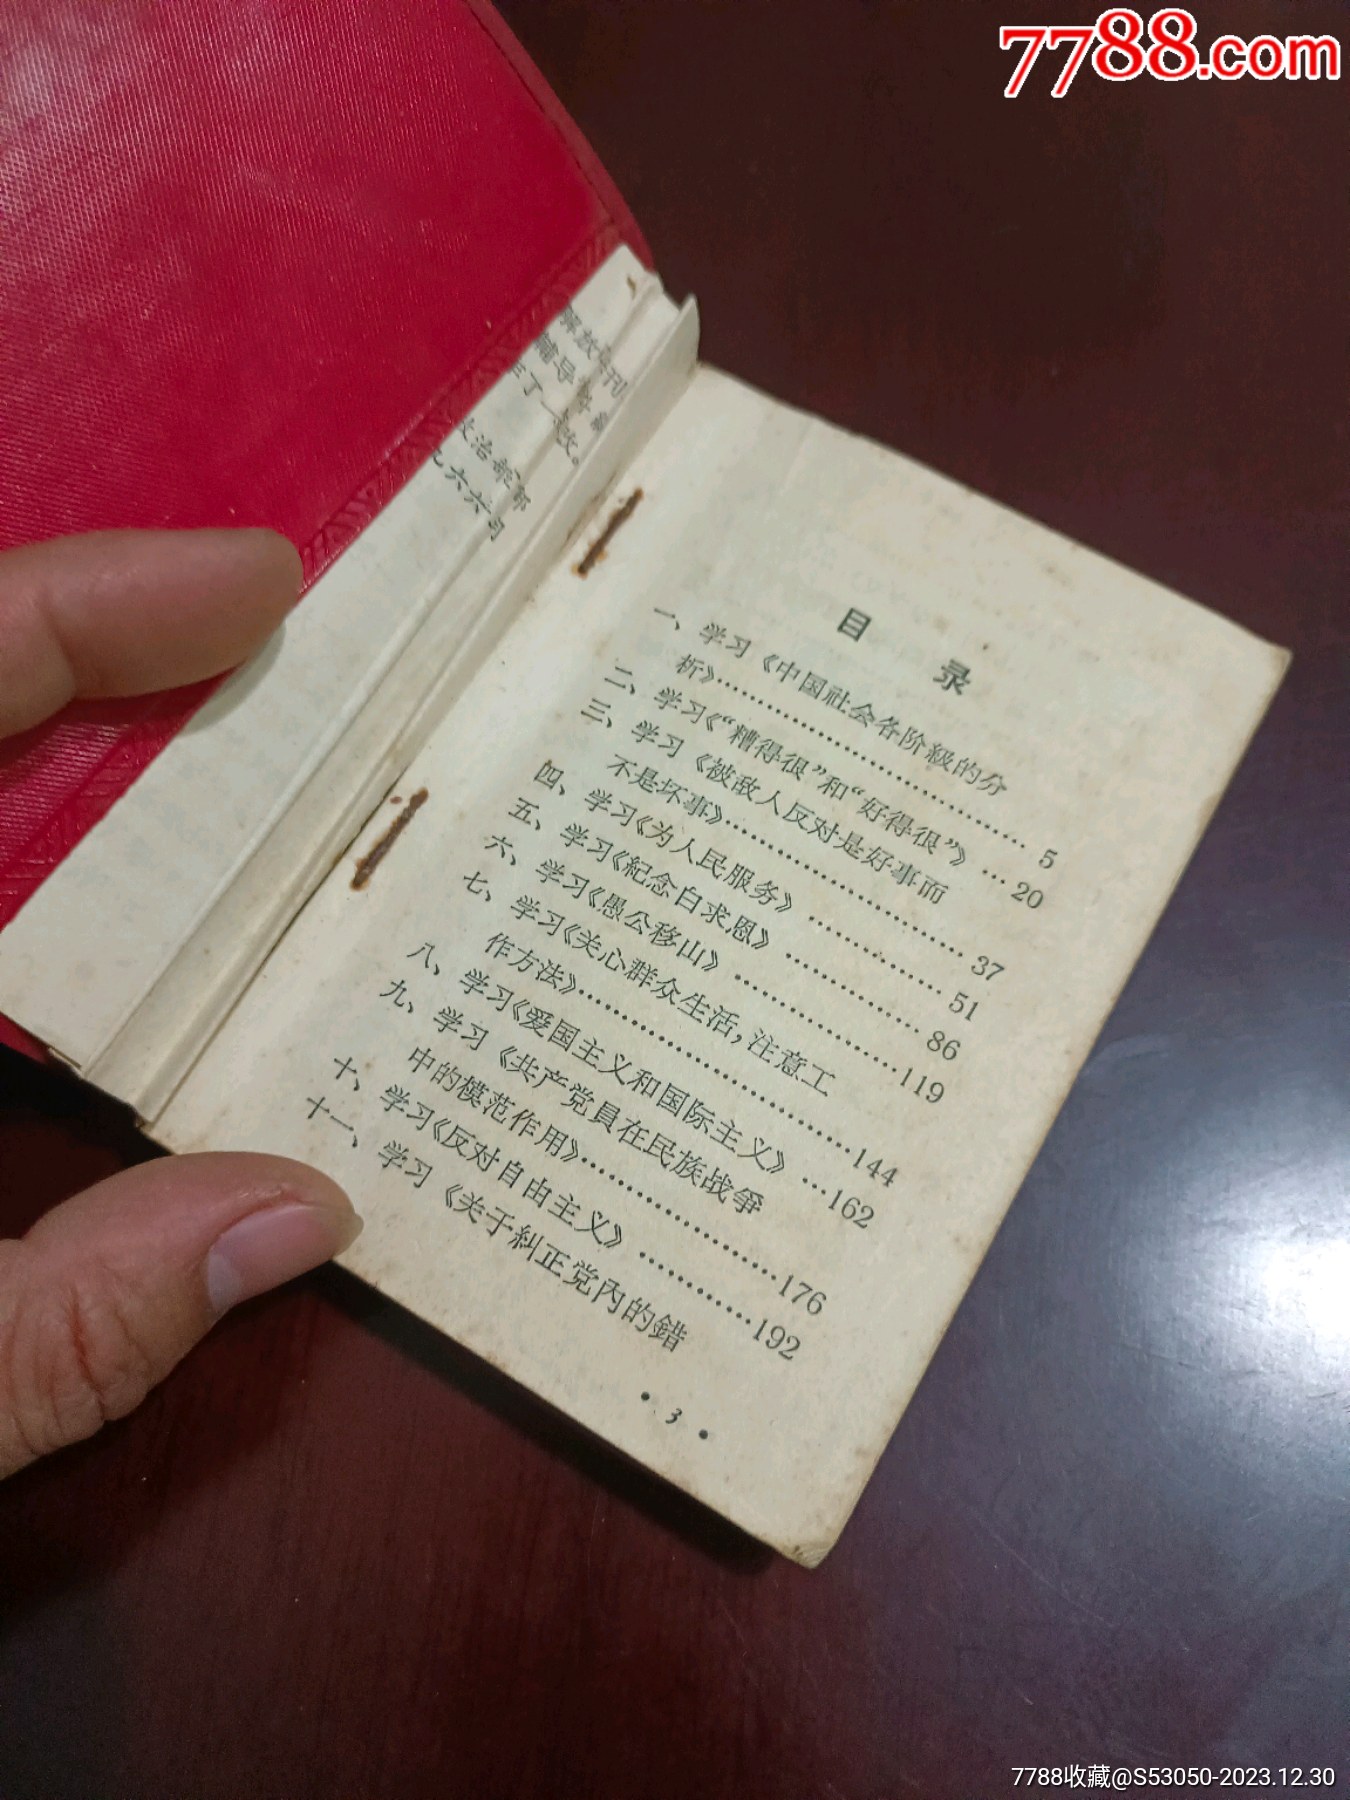 7788.com
解放
刊
辅导
政治部
九六六
目 录
一、学习《中国社会各阶級的分
析》 5
二、学习《“糟得很”和“好得很”》 20
三、学习《被敌人反对是好事而
不是坏事》 37
四、学习《为人民服务》 51
五、学习《紀念白求恩》 86
六、学习《愚公移山》 119
七、学习《关心群众生活，注意工
作方法》 144
八、学习《爱国主义和国际主义》 162
九、学习《共产党員在民族战爭
中的模范作用》 176
十、学习《反对自由主义》 192
十一、学习《关于糾正党內的錯
• 3 •
7788收藏@S53050-2023.12.30